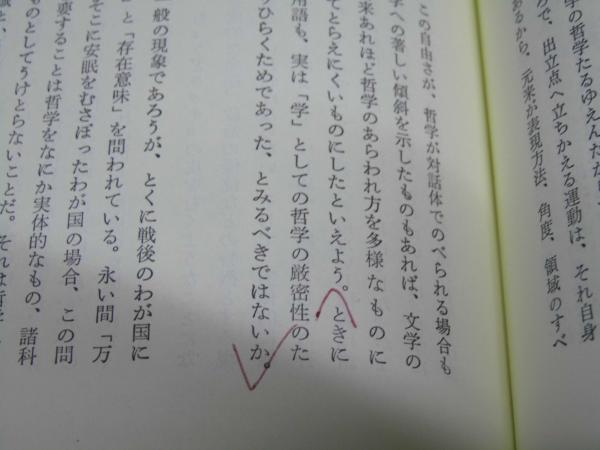 学の哲学たるゆえんだから
ので、出立点へ立ちかえる運動は、それ自身
あるから、元来が表現方法、角度、領域のすべ
この自由さが、哲学が対話体でのべられる場合も
学への著しい傾斜を示したものもあれば、文学の
来あれほど哲学のあらわれ方を多様なものに
てとらえにくいものにしたといえよう。ときに
用語も、実は「学」としての哲学の厳密性のた
ひらくためであった、とみるべきではないか。
般の現象であろうが、とくに戦後のわが国に
」と「存在意味」を問われている。永い間「万
そこに安眠をむさぼったわが国の場合、この問
要することは哲学をなにか実体的なもの、諸科
ものとしてうけとらないことだ。それは哲